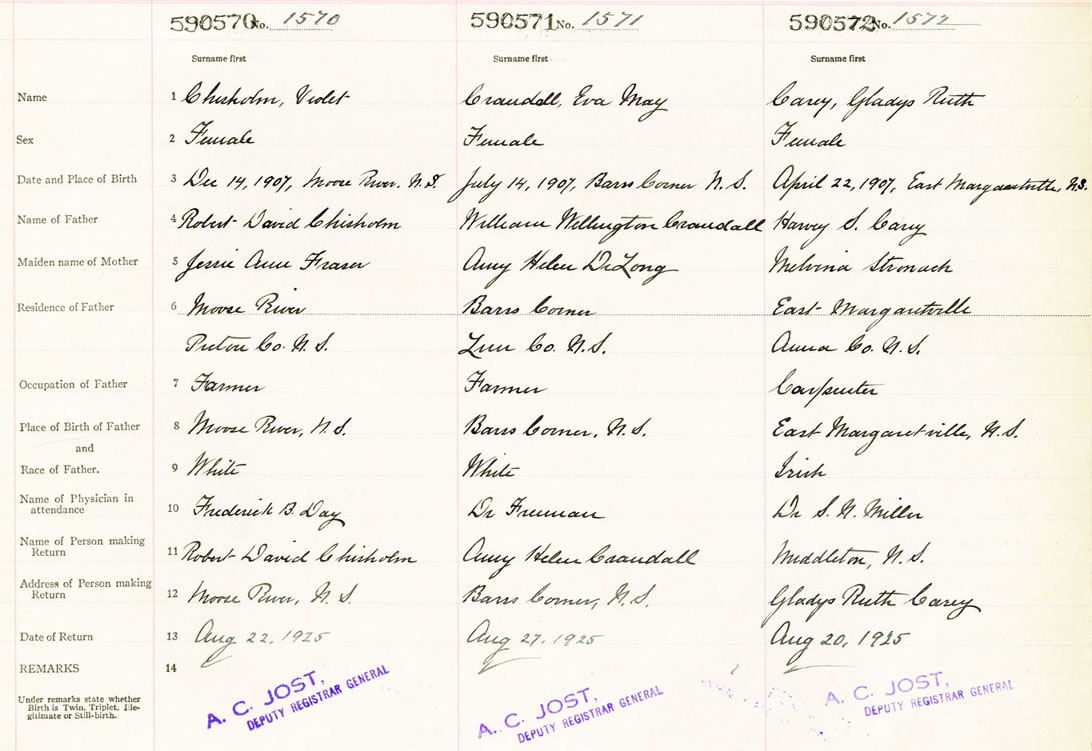 590570 No. 1570 590571 No. 1571 590572 No. 1572
Surname first Surname first Surname first
Name 1 Chisholm, Violet Crandall, Eva May Carey, Gladys Ruth
Sex 2 Female Female Female
Date and Place of Birth 3 Dec 14, 1907, Moose River. N.S. July 14, 1907, Barss Corner N.S. April 22, 1907, East Margaretville, N.S.
Name of Father 4 Robert David Chisholm William Wellington Crandall Harvey S. Carey
Maiden name of Mother 5 Jessie Ann Fraser Amy Helen DeLong Melvina Stronach
Residence of Father 6 Moose River Barss Corner East Margaretville
Pictou Co. N.S. Lun Co. N.S. Anna Co. N.S.
Occupation of Father 7 Farmer Farmer Carpenter
Place of Birth of Father 8 Moose River, N.S. Barss Corner, N.S. East Margaretville, N.S.
and
Race of Father. 9 White White Irish
Name of Physician in
attendance 10 Frederick B. Day Dr Freeman Dr S. N. Miller
Name of Person making
Return 11 Robert David Chisholm Amy Helen Crandall Middleton, N.S.
Address of Person making
Return 12 Moose River, N.S. Barss Corner, N.S. Gladys Ruth Carey
Date of Return 13 Aug 22, 1925 Aug 27, 1925 Aug 20, 1925
REMARKS 14
A. C. JOST, A. C. JOST, A. C. JOST,
DEPUTY REGISTRAR GENERAL DEPUTY REGISTRAR GENERAL DEPUTY REGISTRAR GENERAL
Under remarks state whether
Birth is Twin, Triplet, Ille-
gitimate or Still-birth.